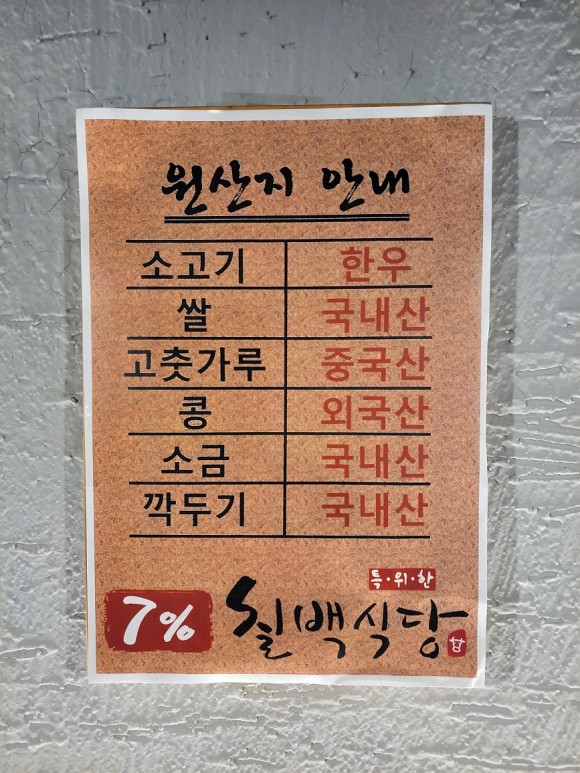 원산지 안내
소고기 한우
쌀 국내산
고춧가루 중국산
콩 외국산
소금 국내산
깍두기 국내산
특·위·한
7% 칠백식당
甘